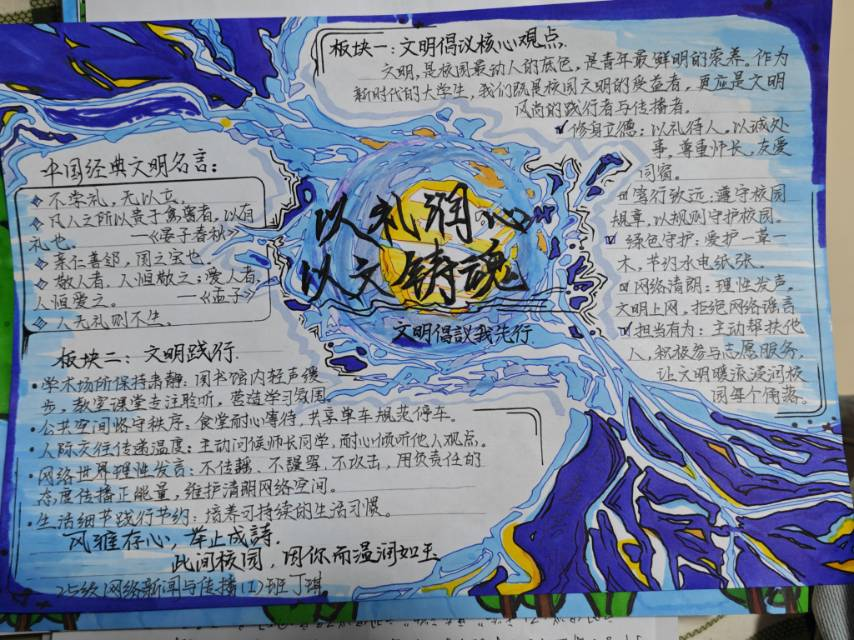 板块一：文明倡议核心观点.
文明，是校园最动人的底色，是青年最鲜明的素养。作为
新时代的大学生，我们既是校园文明的受益者，更应是文明
风尚的践行者与传播者。
修身立德：以礼待人，以诚处
事，尊重师长，友爱
同窗。
笃行致远：遵守校园
规章，以规则守护校园。
绿色守护：爱护一草一
木，节约水电纸张。
网络清朗：理性发声。
文明上网，拒绝网络谣言
担当有为：主动帮扶他
人，积极参与志愿服务，
让文明暖流浸润校
园每个角落。
中国经典文明名言：
不学礼，无以立。
凡人之所以贵于禽兽者，以有
礼也。——《晏子春秋》
亲仁善邻，国之宝也。
敬人者，人恒敬之；爱人者，
人恒爱之。——《孟子》
人无礼则不生.
以礼润心
以文铸魂
文明倡議我先行.
板块二：文明践行.
学术场所保持肃静：图书馆内轻声缓
步，教室课堂专注聆听，营造学习氛围。
公共空间恪守秩序：食堂耐心等待，共享单车规范停车。
人际交往传递温度：主动问候师长同学，耐心倾听他人观点。
网络世界理性发言：不传谣、不謾骂、不攻击，用负责任的
态度传播正能量，维护清明网络空间。
生活细节践行节约：培养可持续的生活习惯。
风雅存心，举止成詩.
此间校园，因你而温润如玉
25级网络新闻与传播(1)班丁琪